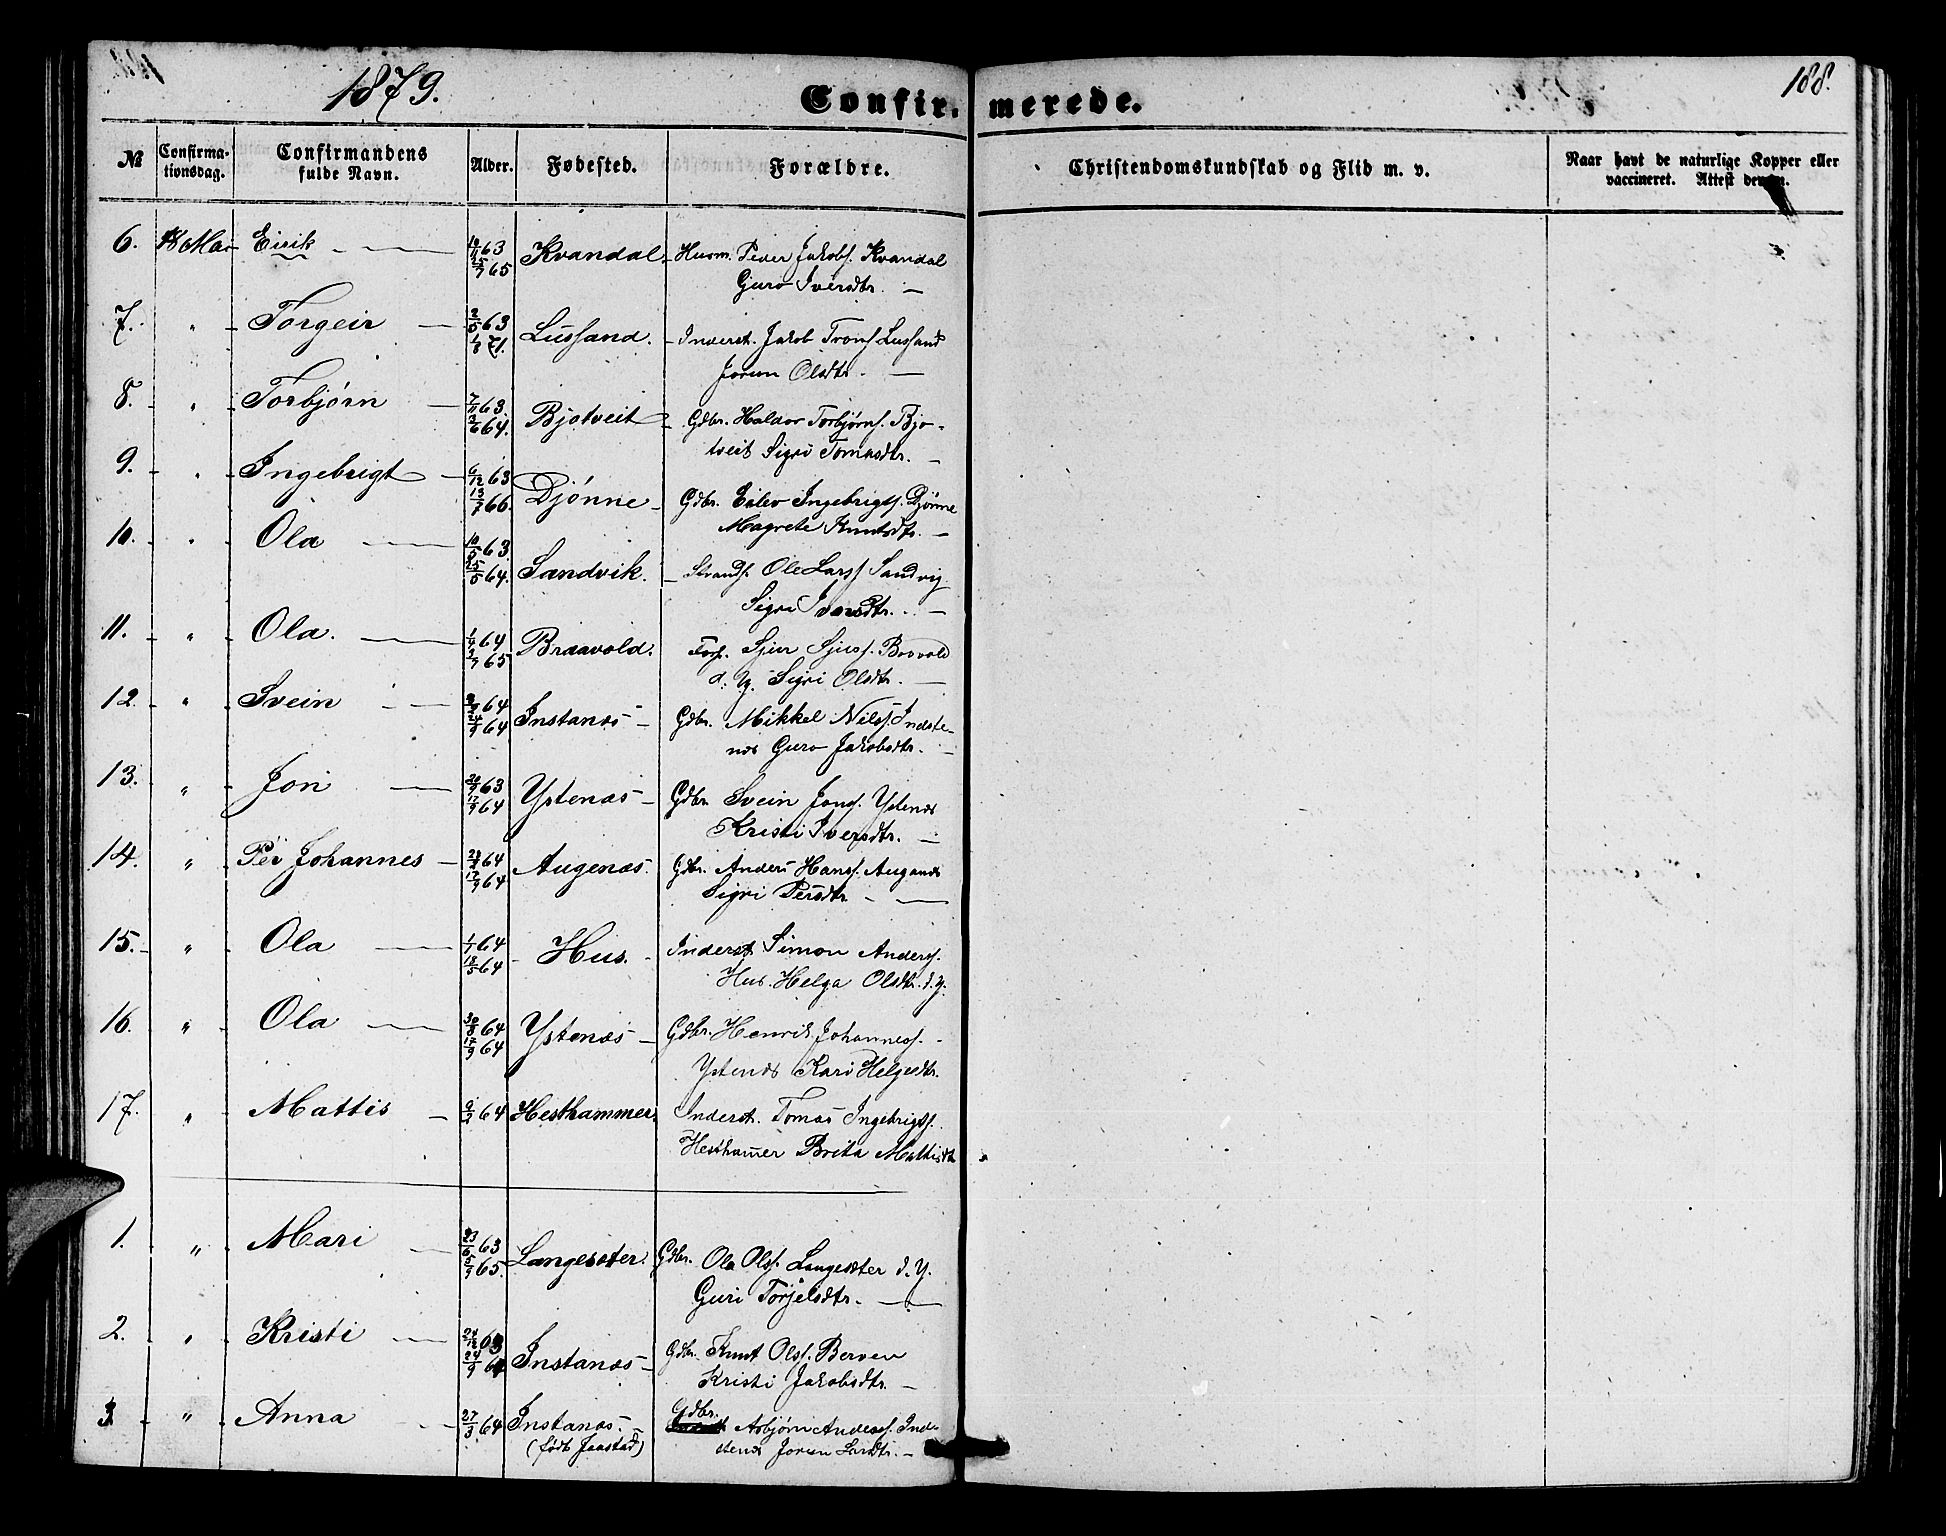 1879.
Confirmerede.
188.
№ Confirmationsdag. Confirmandens fulde Navn. Alder. Fødested. Forældre. Christendomskundskab og Flid m. v. Naar havt de naturlige Kopper eller vaccineret. Attest derom.
6. 18 Mai Eirik 63 Kvandal Husm. Peder Jakobs. Kvandal
65 Guro Iversdtr. —
7. " Torgeir — 2/5 63 Lussand. Inderst. Jakob Trons. Lussand
71. Jorun Olsdtr. —
8. " Torbjørn 7/11 63. Bjotveit Gdbr. Haldor Torbjørns. Bjo-
64. tveit Sigri Tomasdtr. —
9. " Ingebrigt — 6/12 63 Djønne Gdbr. Eilev Ingebrigts. Djønne
66. Magrete Knutsdtr. —
10. " Ola — 10/5 63 Sandvik. Strands. Ole Larss. Sandvig
64. Sigri Ivarsdtr. —
11. " Ola. — 1/4 64 Braavold. Sjur Sjurs. Bravold
65 d. y. Sigri Olsdtr. —
12 " Svein — 64 Instanæs — Gdbr. Mikkel Nilss. Indste-
24/9 64 næs Guro Jakobsdtr. —
13. " Jon — 63 Ystenæs — Gdbr. Svein Jons. Ystenæs
17/9 64 Kristi Iversdtr. —
14. " Per Johannes — 64 Augenæs. Gdbr. Anders Hanss. Augenæs
17/9 64 Sigri Persdtr — —
15. " Ola — 1/1 64 Hus. Inderst. Simon Anderss.
18/5 64 Hus. Helga Olsdtr. d. y.
16. " Ola — 30/8 64 Ystenæs — Gdbr. Henrik Johanness.
17/9 64 Ystenæs Kari Helgesdtr.
17. " Mattis — 64 Hesthammer Inderst. Tomas Ingebrigts.
Hesthamer Brita Mattisdtr
1. " Mari — 23/6 63 Langesæter. Gdbr. Ola Olss. Langesæter d. Y.
65. Guri Torjelsdtr. —
2. " Kristi — 63 Instanæs — Gdbr. Knut Olss. Berven
24/9 64 Kristi Jakobsdtr. —
3 " Anna — 27/3 64 Instanæs. — Gdbr.
Asbjørn Anderss. Ind-
(født Jaastad) stenæs Jorun Larsdtr. —